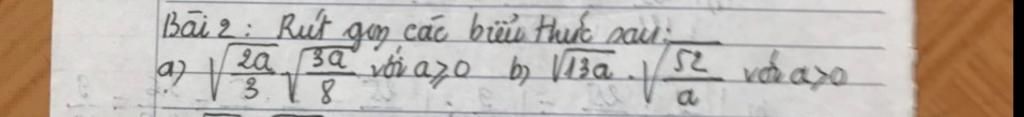 Bài 2: Rút gọn các biểu thức sau:
a) √(2a/3) √(3a/8) với a≥0 b) √13a . √(52/a) với a>0